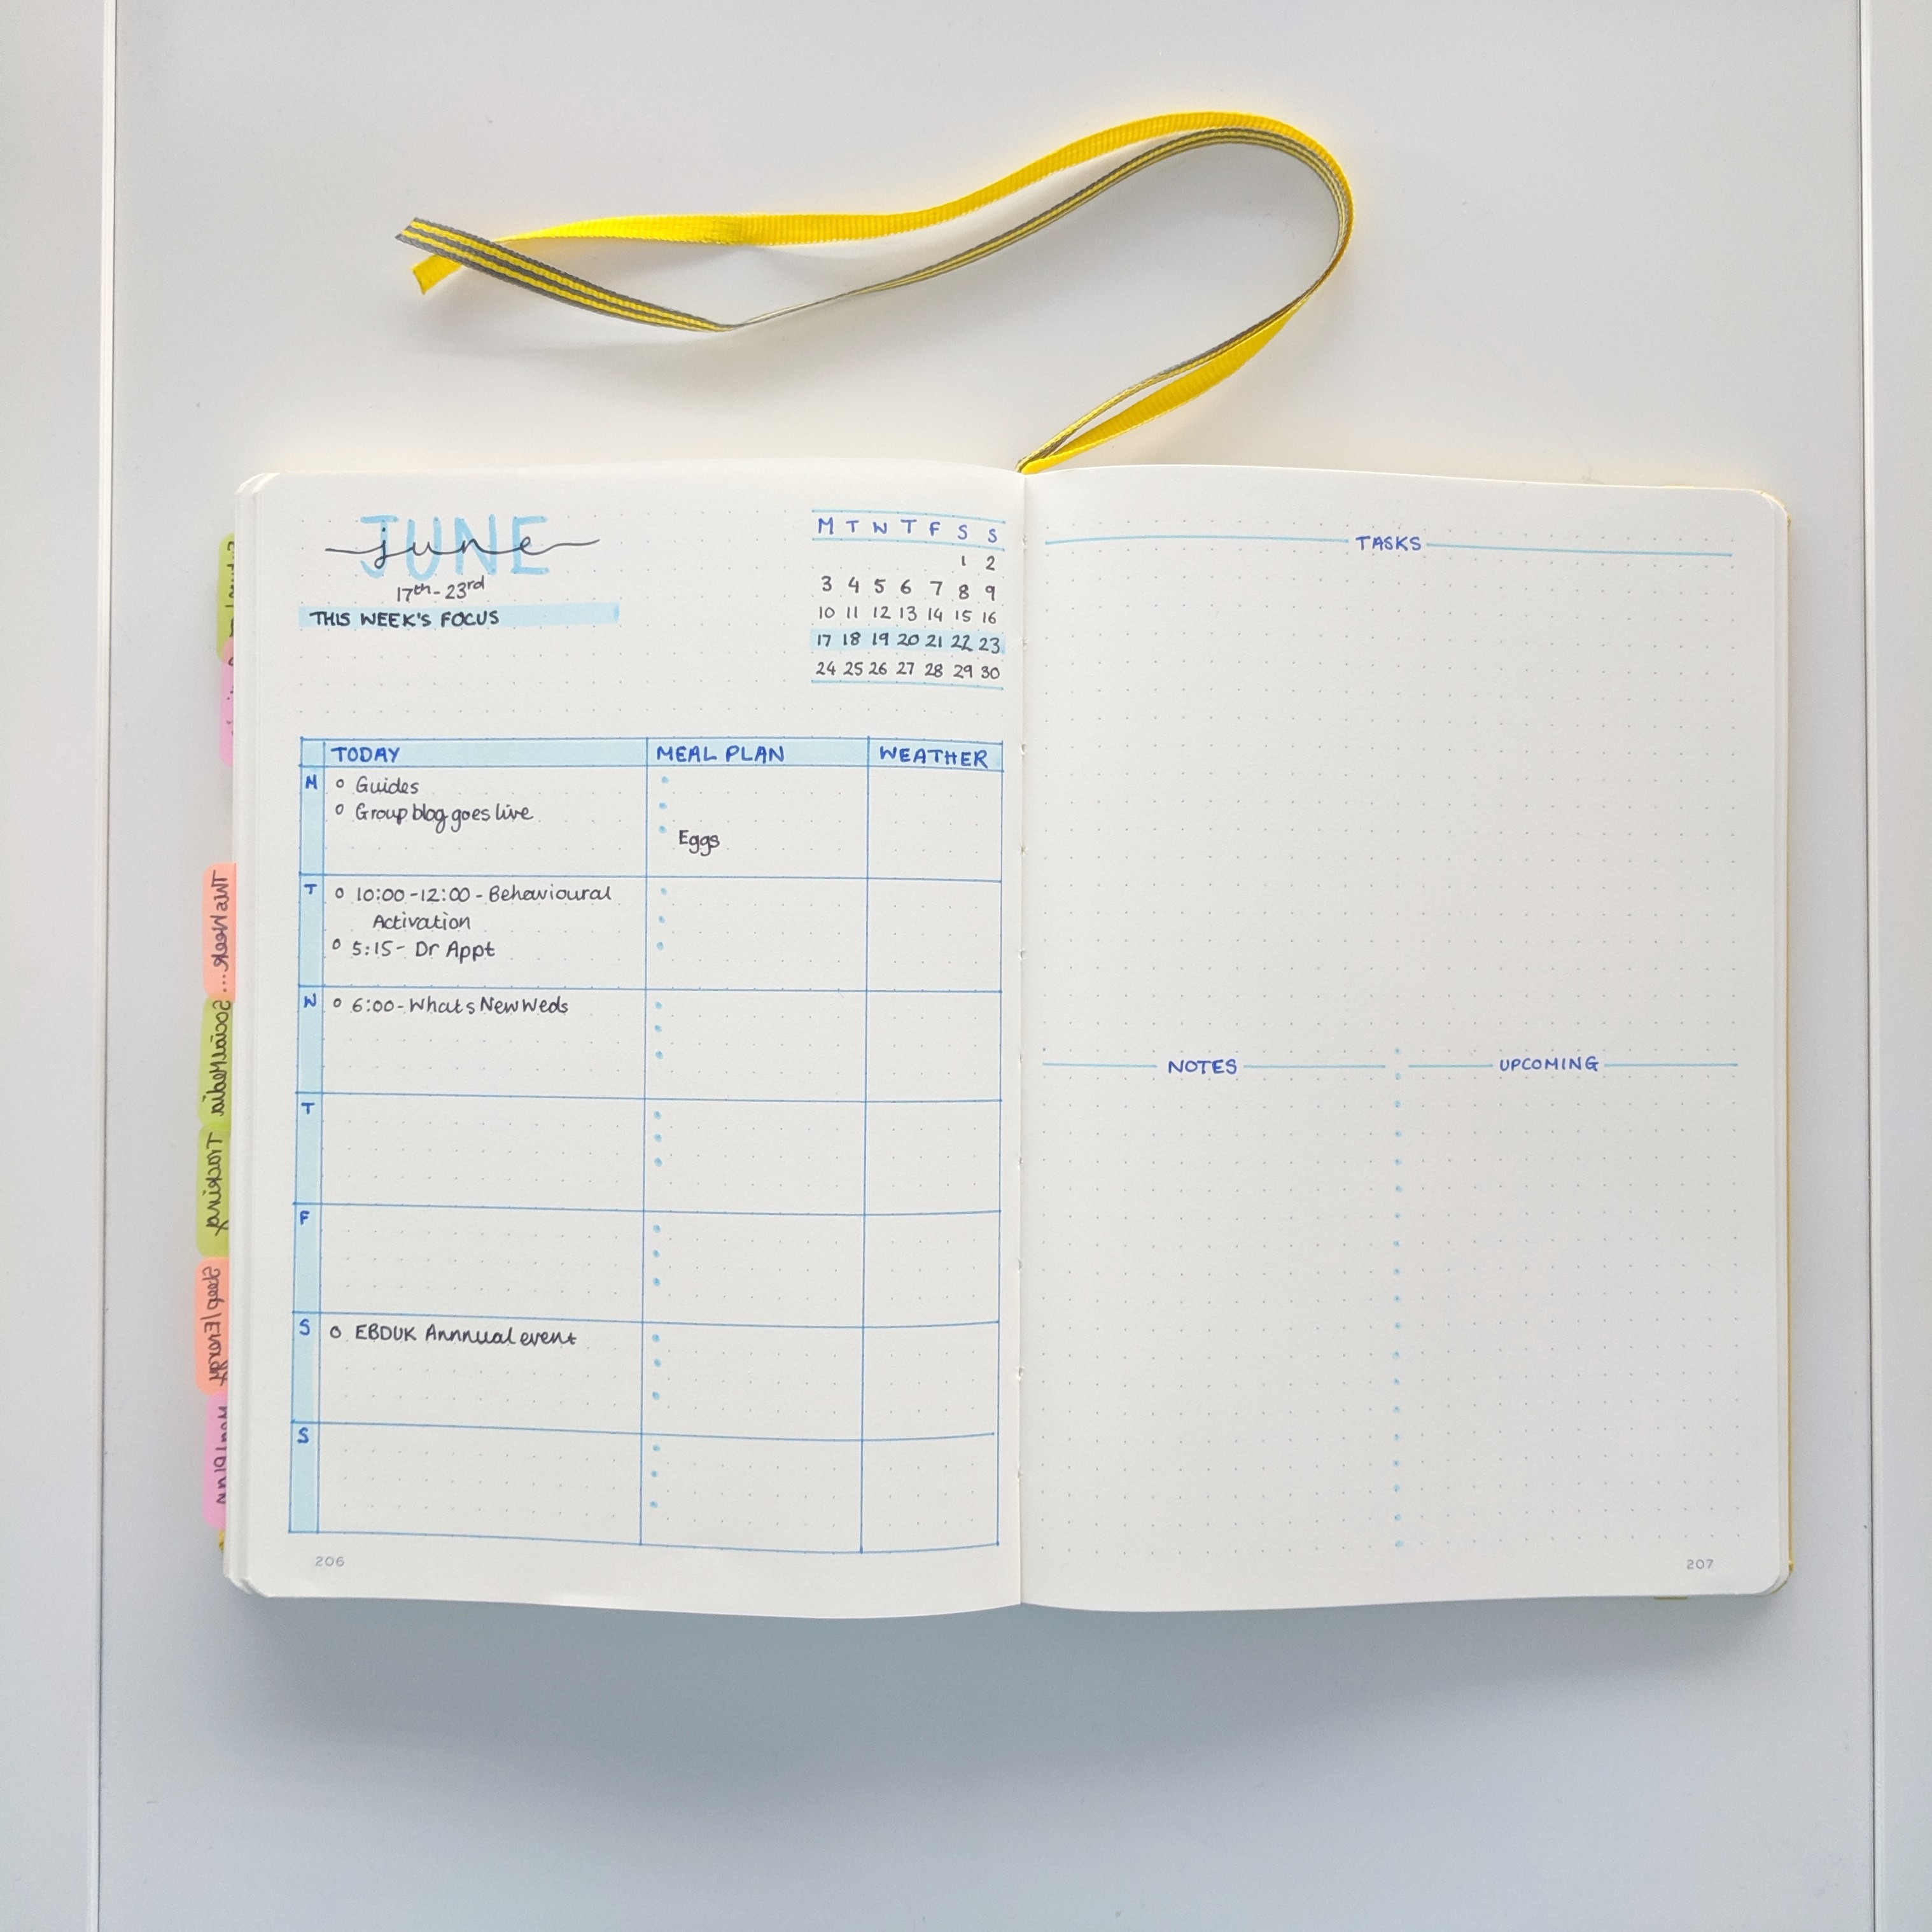 JUNE
june
17th - 23rd
THIS WEEK'S FOCUS
M T W T F S S
1 2
3 4 5 6 7 8 9
10 11 12 13 14 15 16
17 18 19 20 21 22 23
24 25 26 27 28 29 30
TODAY MEAL PLAN WEATHER
M
o Guides
o Group blog goes live
Eggs
T
o 10:00-12:00 - Behavioural
Activation
o 5:15 - Dr Appt
W
o 6:00 - Whats New Weds
T
F
S
o EBDUK Annnual event
S
206
TASKS
NOTES UPCOMING
207
This Week...
Social Media
Tracking